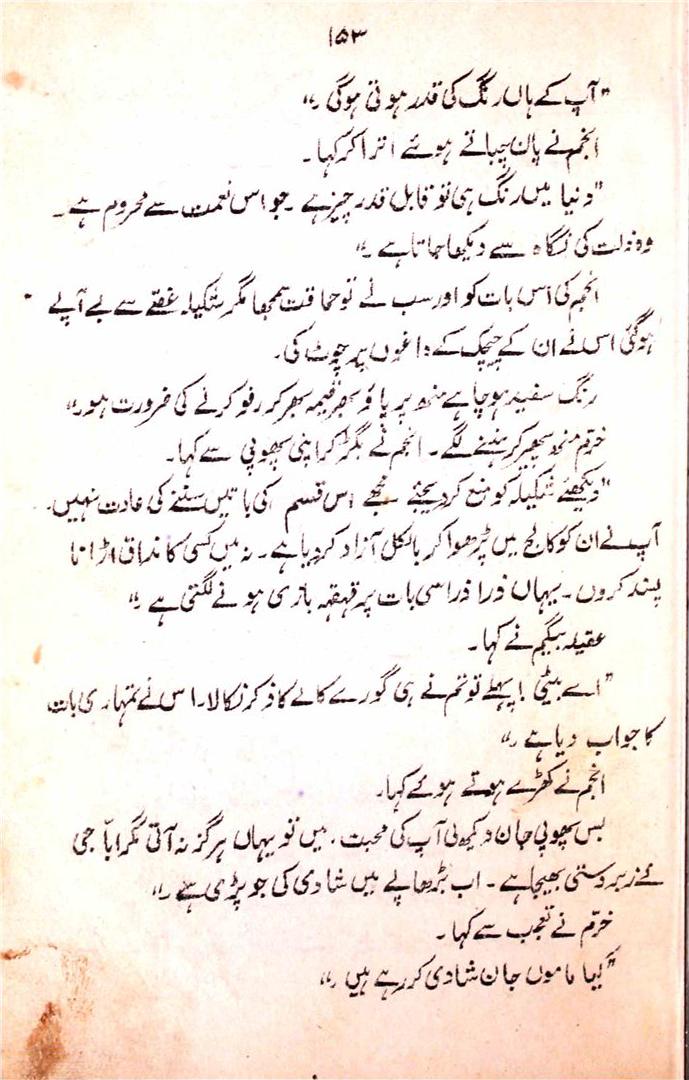 ۱۵۳
"آپ کے ہاں رنگ کی قدر ہوتی ہوگی۔"
انجم نے پان چباتے ہوئے اتراکر کہا۔
"دنیا میں رنگ ہی تو قابل قدر چیز ہے۔ جو اس نعمت سے محروم ہے۔
وہ ذلت کی نگاہ سے دیکھا جاتا ہے۔"
انجم کی اس بات کو اور سب نے تو حماقت سمجھا مگر شکیلہ غصے سے بے آپے
ہوگئی اس نے ان کے چیچک کے داغوں پر چوٹ کی۔
رنگ سفید ہو چاہے منھ پر پاؤ بھر قیمہ بھر کر رفو کرنے کی ضرورت ہو۔"
خرّم منھ پھیر کر ہنسنے لگے۔ انجم نے بگڑ کر اپنی پھوپی سے کہا۔
"دیکھئے شکیلہ کو منع کر دیجئے مجھے اس قسم کی باتیں سننے کی عادت نہیں۔
آپ نے ان کو کالج میں پڑھوا کر بالکل آزاد کر دیا ہے۔ نہ میں کسی کا مذاق اڑانا
پسند کروں۔ یہاں ذرا ذرا سی بات پر قہقہہ بازی ہونے لگتی ہے۔"
عقیلہ بیگم نے کہا۔
"اے بیٹی! پہلے تو تم نے ہی گورے کالے کا ذکر نکالا۔ اس نے تمہاری بات
کا جواب دیا ہے۔"
انجم نے کھڑے ہوتے ہوئے کہا۔
بس پھوپی جان دیکھ لی آپ کی محبت۔ میں تو یہاں ہرگز نہ آتی مگر ابّا جی
نے زبردستی بھیجا ہے۔ اب بڑھاپے میں شادی کی جو پڑی ہے۔"
خرّم نے تعجب سے کہا۔
"کیا ماموں جان شادی کر رہے ہیں۔"